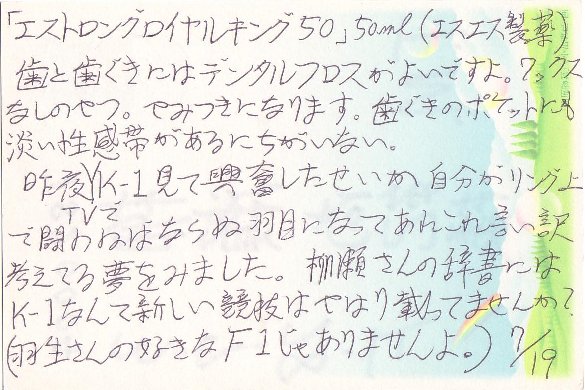 「エストロングロイヤルキング50」50ml(エスエス製薬)
歯と歯ぐきにはデンタルフロスがよいですよ。ワックス
なしのやつ。やみつきになります。歯ぐきのポケットにも
淡い性感帯があるにちがいない。
昨夜TVでK-1見て興奮したせいか、自分がリング上
で闘わねばならぬ羽目になってあれこれ言い訳
考えてる夢をみました。柳瀬さんの辞書には
K-1なんて新しい競技はやはり載ってませんか?
(羽生さんの好きなF1じゃありませんよ。) 7/19